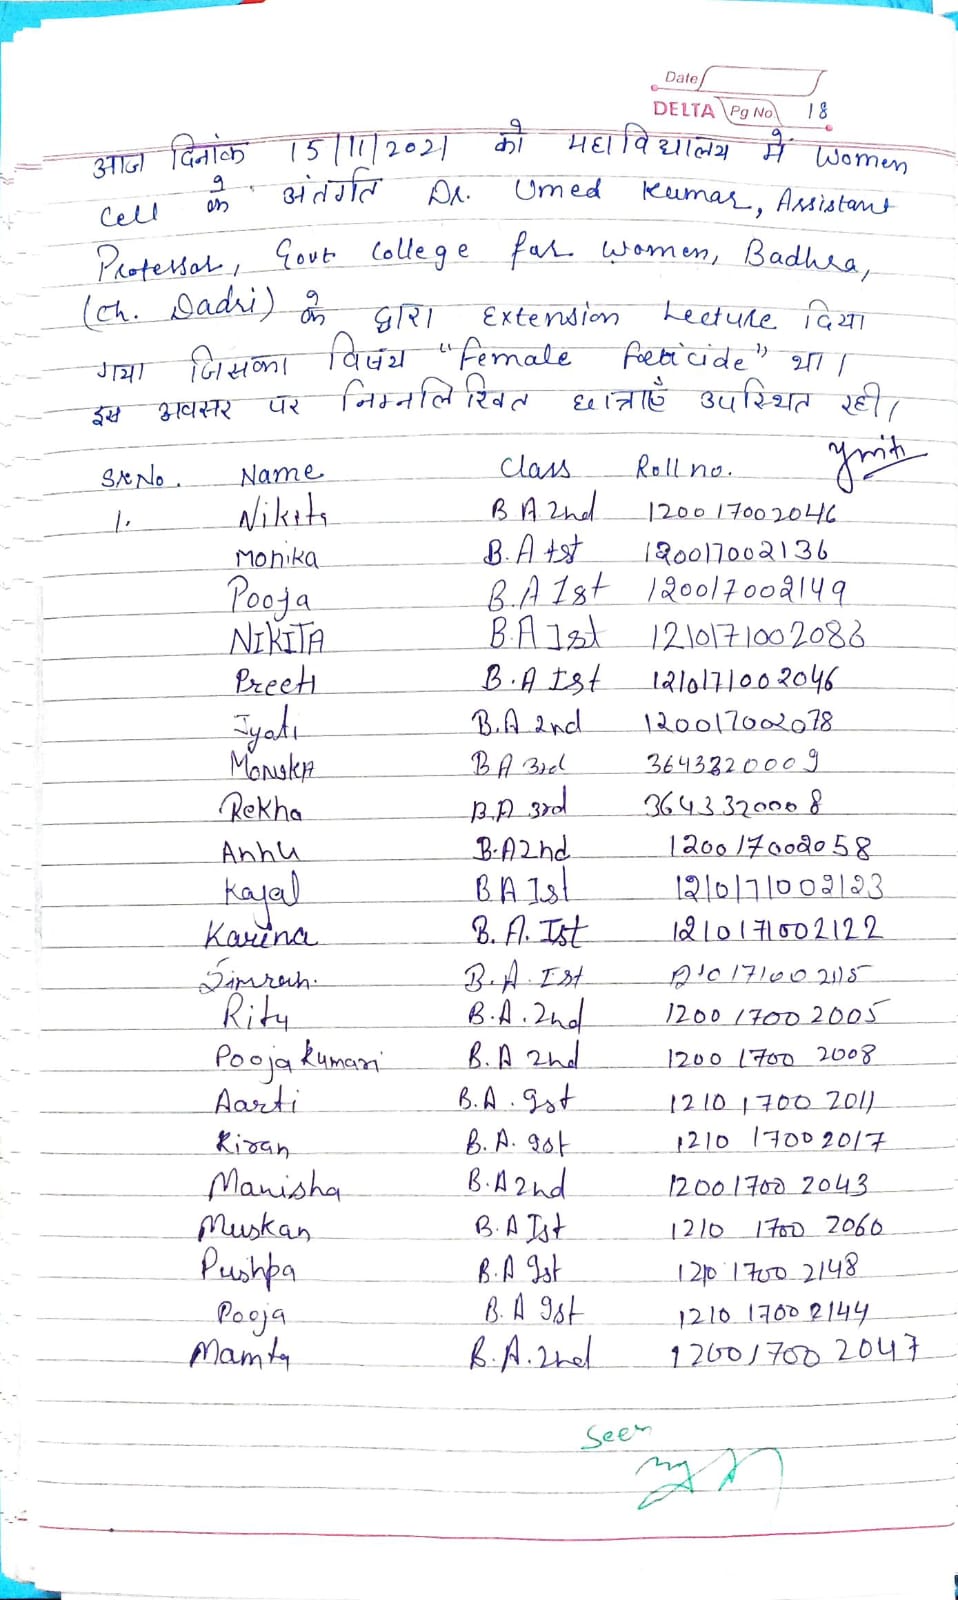 Date
DELTA Pg No 18
आज दिनांक 15/11/2021 को महाविद्यालय में Women
Cell के अंतर्गत Dr. Umed Kumar, Assistant
Professor, Govt College for Women, Badhra,
(Ch. Dadri) के द्वारा Extension Lecture दिया
गया जिसका विषय "Female Foeticide" था।
इस अवसर पर निम्नलिखित छात्राएँ उपस्थित रही।
Sr.No. Name Class Roll no.
1. Nikita B A 2nd 120017002046
Monika B.A 1st 120017002136
Pooja B.A Ist 120017002149
NIKITA B.A Ist 121017002086
Preeti B.A Ist 121017002046
Jyoti B.A 2nd 120017002078
Monika B A 3rd 3643320009
Rekha B.A 3rd 3643320008
Annu B.A 2nd 120017002058
Kajal B A Ist 121017002123
Karina B. A. Ist 121017002122
Simran. B. A. Ist 121017002115
Ritu B.A. 2nd 120017002005
Pooja Kumari B. A 2nd 1200 1700 2008
Aarti B.A. Ist 1210 1700 2011
Kiran B. A. Ist 1210 1700 2017
Manisha B.A 2nd 12001700 2043
Muskan B.A Ist 1210 1700 2060
Pushpa B.A Ist 1210 1700 2148
Pooja B. A Ist 1210 1700 2144
Mamta B.A. 2nd 12001700 2047
Seen